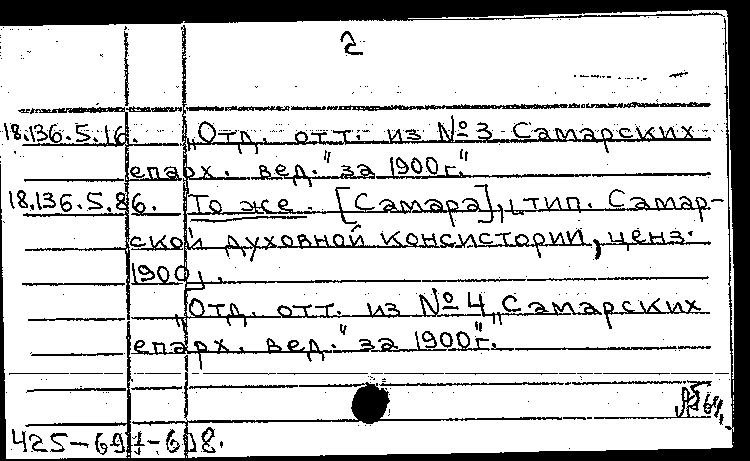 2
18.136.5.16. „Отд. отт. из №3 Самарских
епарх. вед." за 1900г."
18.136.5.86. То же. [Самара], тип. Самар-
ской духовной консистории, ценз.
1900].
„Отд. отт. из №4 „Самарских
епарх. вед." за 1900г".